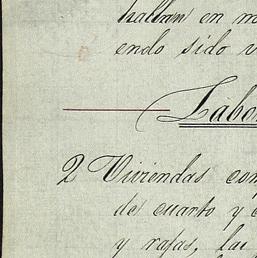 hallan en m
endo sido v
Labo
2 Viviendas com
de cuarto y c
y rafas, la